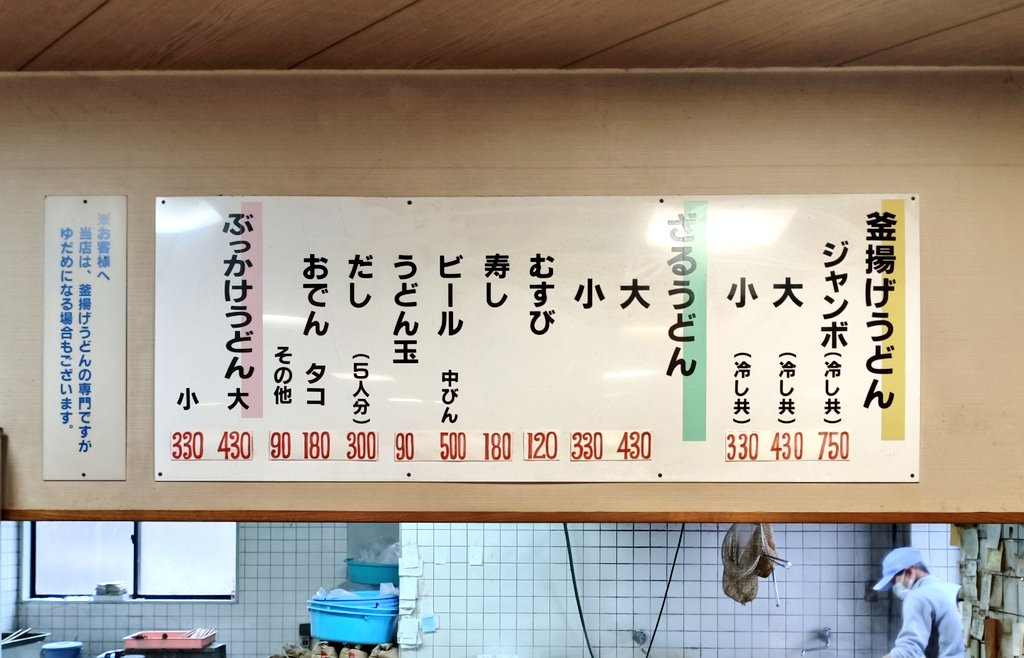 釜揚げうどん
ジャンボ（冷し共） 750
大（冷し共） 430
小（冷し共） 330
ざるうどん
大 430
小 330
むすび 120
寿し 180
ビール 中びん 500
うどん玉 90
だし（5人分） 300
おでん タコ 180
その他 90
ぶっかけうどん 大 430
小 330
※お客様へ
当店は、釜揚げうどんの専門ですが
ゆだめになる場合もございます。